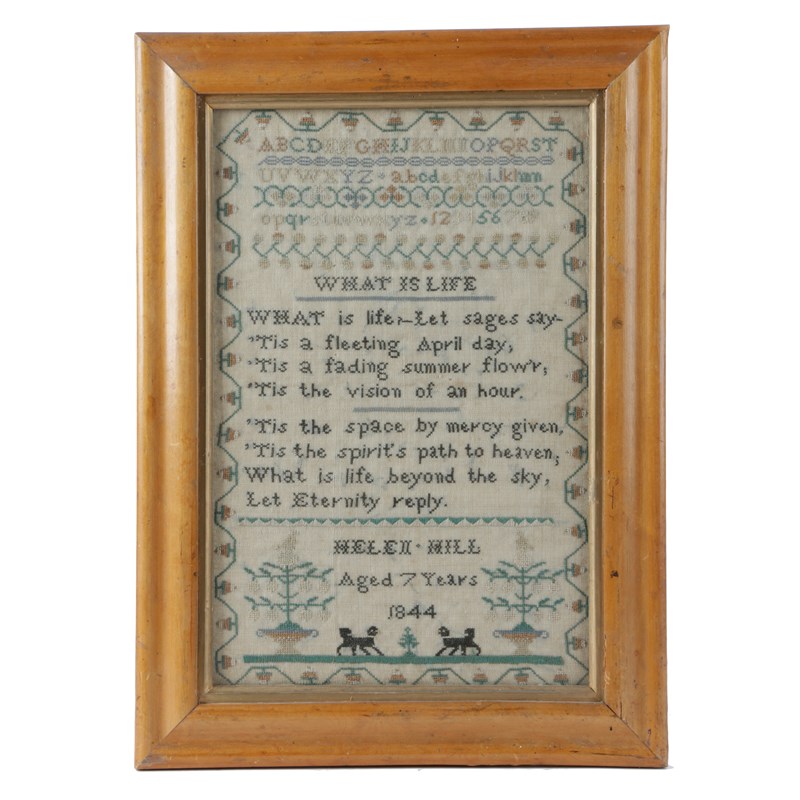 ABCDEFGHIJKLMNOPQRST
UVWXYZ · abcdefghijkhmn
opqrstuvwxyz · 123456789
WHAT IS LIFE
WHAT is life,–Let sages say–
"Tis a fleeting April day,
"Tis a fading summer flow'r,
"Tis the vision of an hour.
"Tis the space by mercy given,
"Tis the spirit's path to heaven,
What is life beyond the sky,
Let Eternity reply.
HELEN · HILL
Aged 7 Years
1844